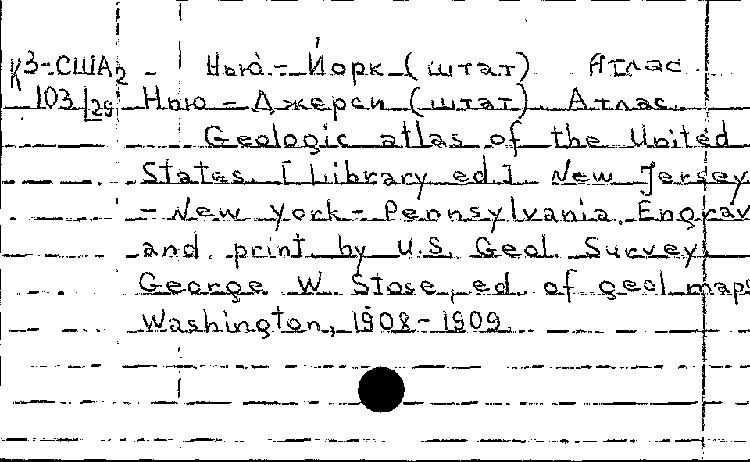 К3-США2 Нью-Йорк (штат) Атлас
103/29 Нью-Джерси (штат). Атлас.
Geologic atlas of the United
States. [Library ed.] New Jersey
- New York - Pennsylvania. Engrav
and print by U.S. Geol. Survey
George W Stose, ed. of geol maps
Washington, 1908-1909